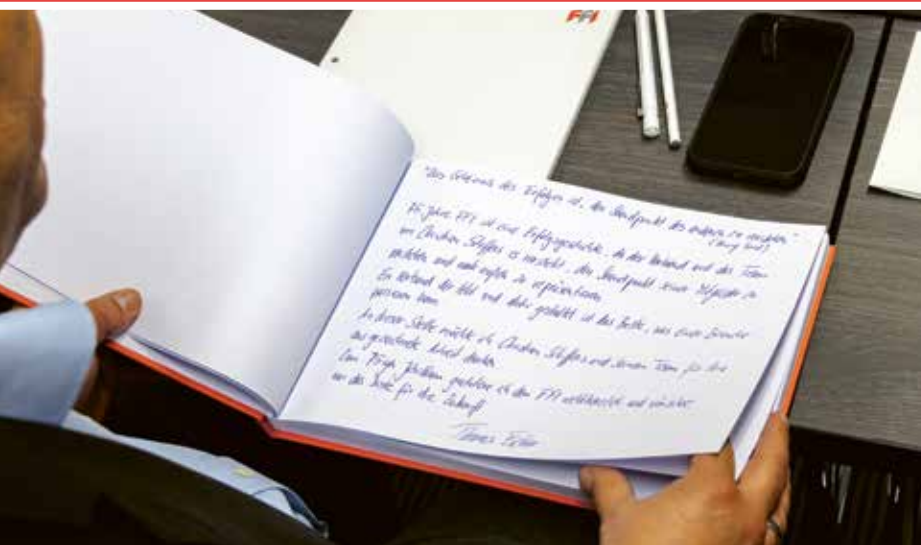 FFI
"Das Geheimnis des Erfolges ist, den Standpunkt des anderen zu verstehen"
(Henry Ford)
Jahre FFI ist eine Erfolgsgeschichte, da der Verband und das Team
um Christian Schiffers es versteht, den Standpunkt seiner Mitglieder zu
verstehen und nach außen zu repräsentieren.
Ein Verband der lebt und aktiv gestaltet ist das Beste, was einer Branche
passieren kann.
An dieser Stelle möchte ich Christian Schiffers und seinem Team für ihre
ausgezeichnete Arbeit danken.
Zum Jubiläum gratuliere ich dem FFI und wünsche
nur das Beste für die Zukunft
Thomas